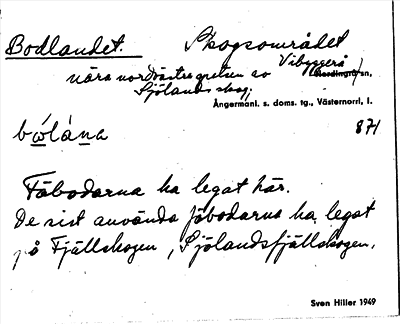 Bodlandet. Skogsområdet
nära nordvästra gränsen av Vibyggerå
Nordingrå sn,
Själands skog,
Ångermanl. s. doms. tg., Västernorrl. l.
bὼlána 871
Fäbodarna ha legat här.
De sist använda fäbodarna ha legat
på Fjällskogen, Själandsfjällskogen.
Sven Hiller 1949